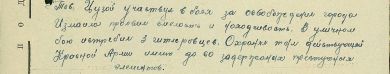 Тов. Цузой участвуя в боях за освобождение города
Измаила проявил смелость и находчивость. В уличном
бою истребил 3 гитлеровцев. Охраняя тыл действующей
Красной Армии имеет до 60 задержанных преступных
элементов.